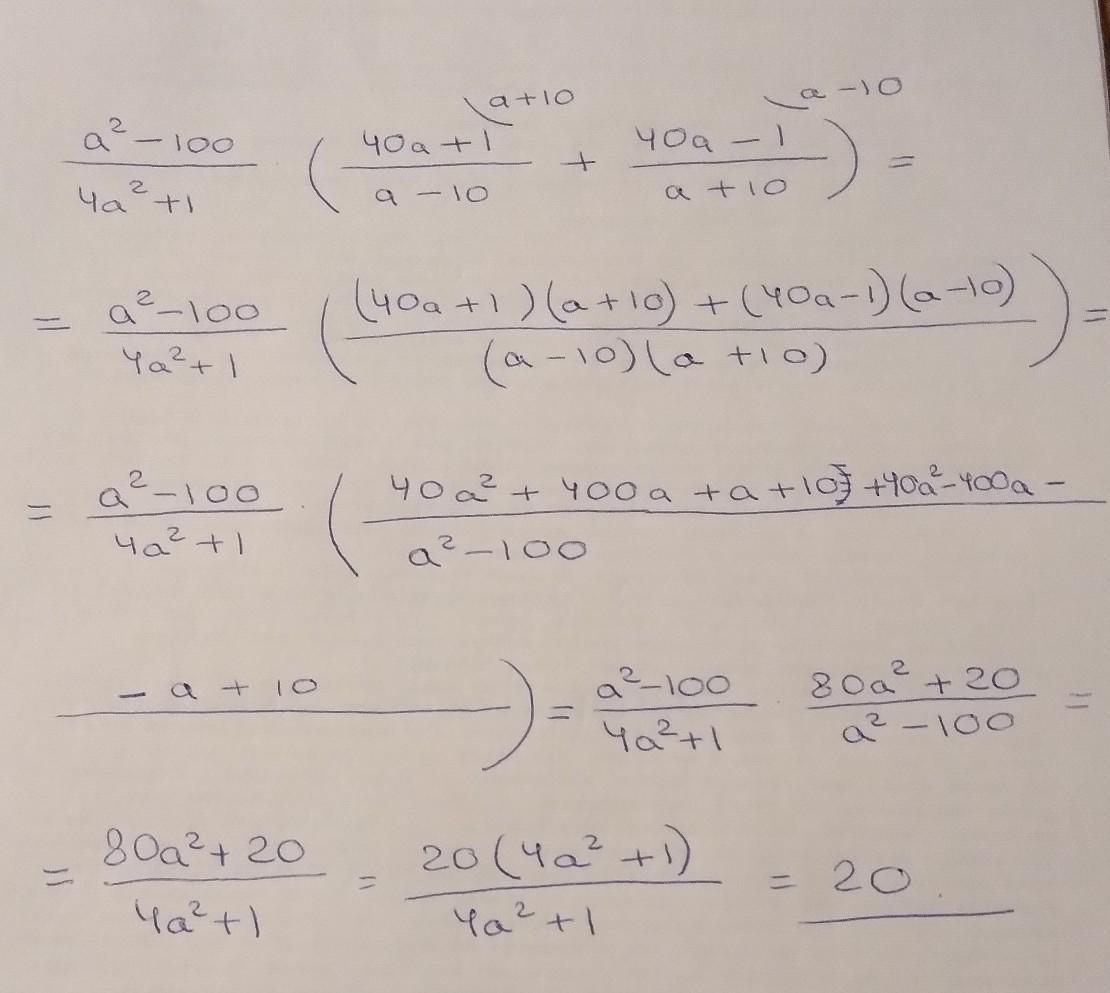 a+10 a-10
a²-100 / 4a²+1 · ( 40a+1 / a-10 + 40a-1 / a+10 ) =
= a²-100 / 4a²+1 ( (40a+1)(a+10)+(40a-1)(a-10) / (a-10)(a+10) ) =
= a²-100 / 4a²+1 · ( 40a²+400a+a+10+40a²-400a- / a²-100
-a+10 ) = a²-100 / 4a²+1 · 80a²+20 / a²-100 =
= 80a²+20 / 4a²+1 = 20(4a²+1) / 4a²+1 = 20.